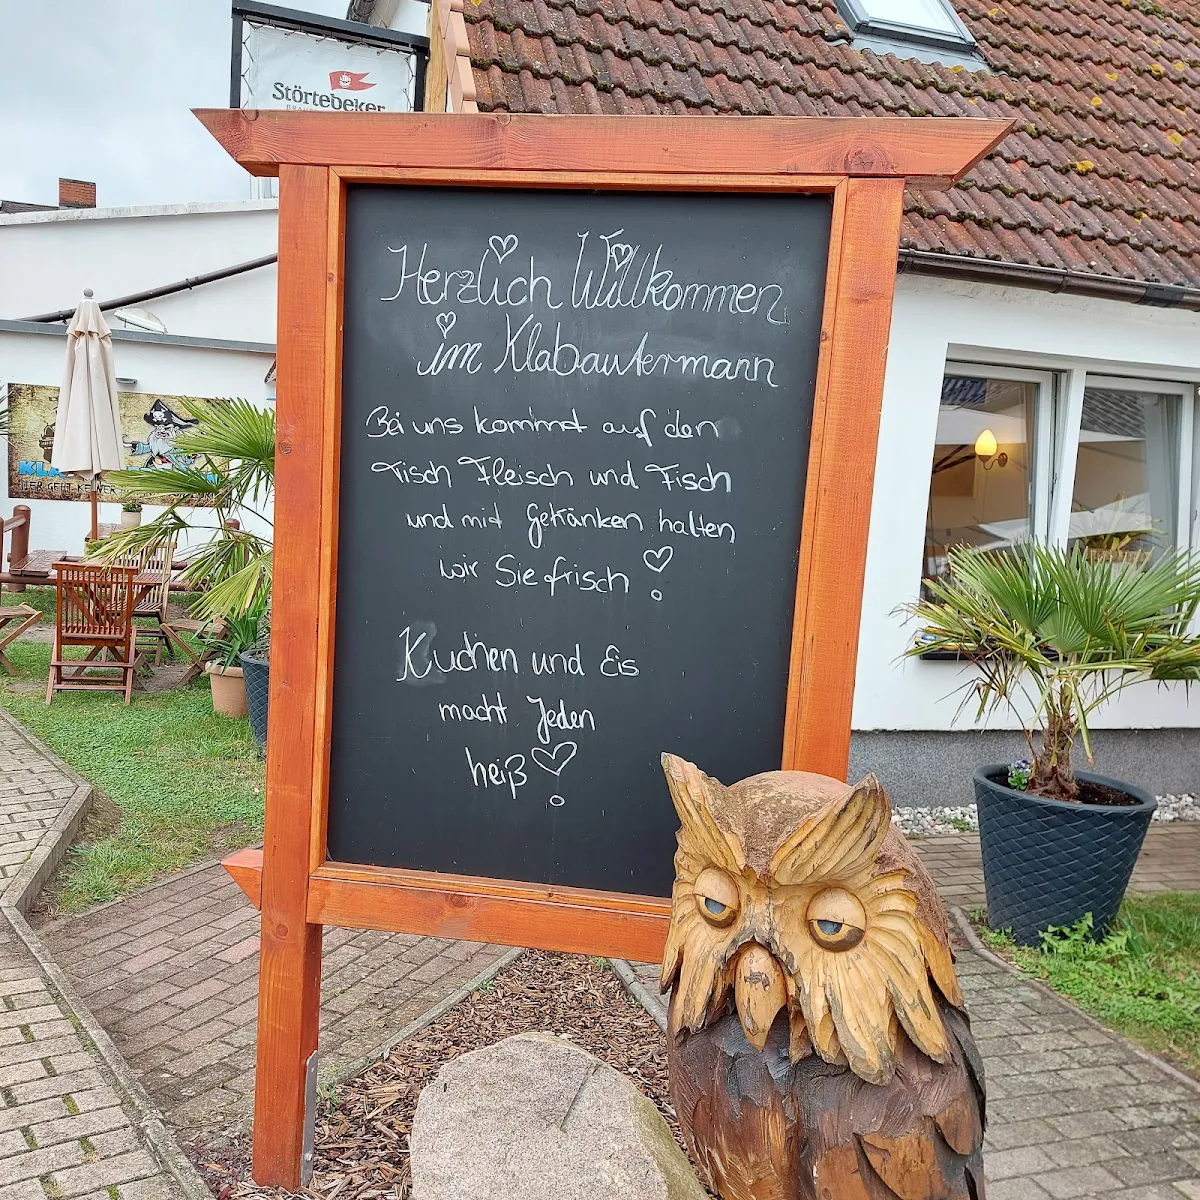 Störtebeker
Herzlich Willkommen
im Klabautermann
Bei uns kommt auf den
Tisch Fleisch und Fisch
und mit Getränken halten
wir Sie frisch!
Kuchen und Eis
macht Jeden
heiß!